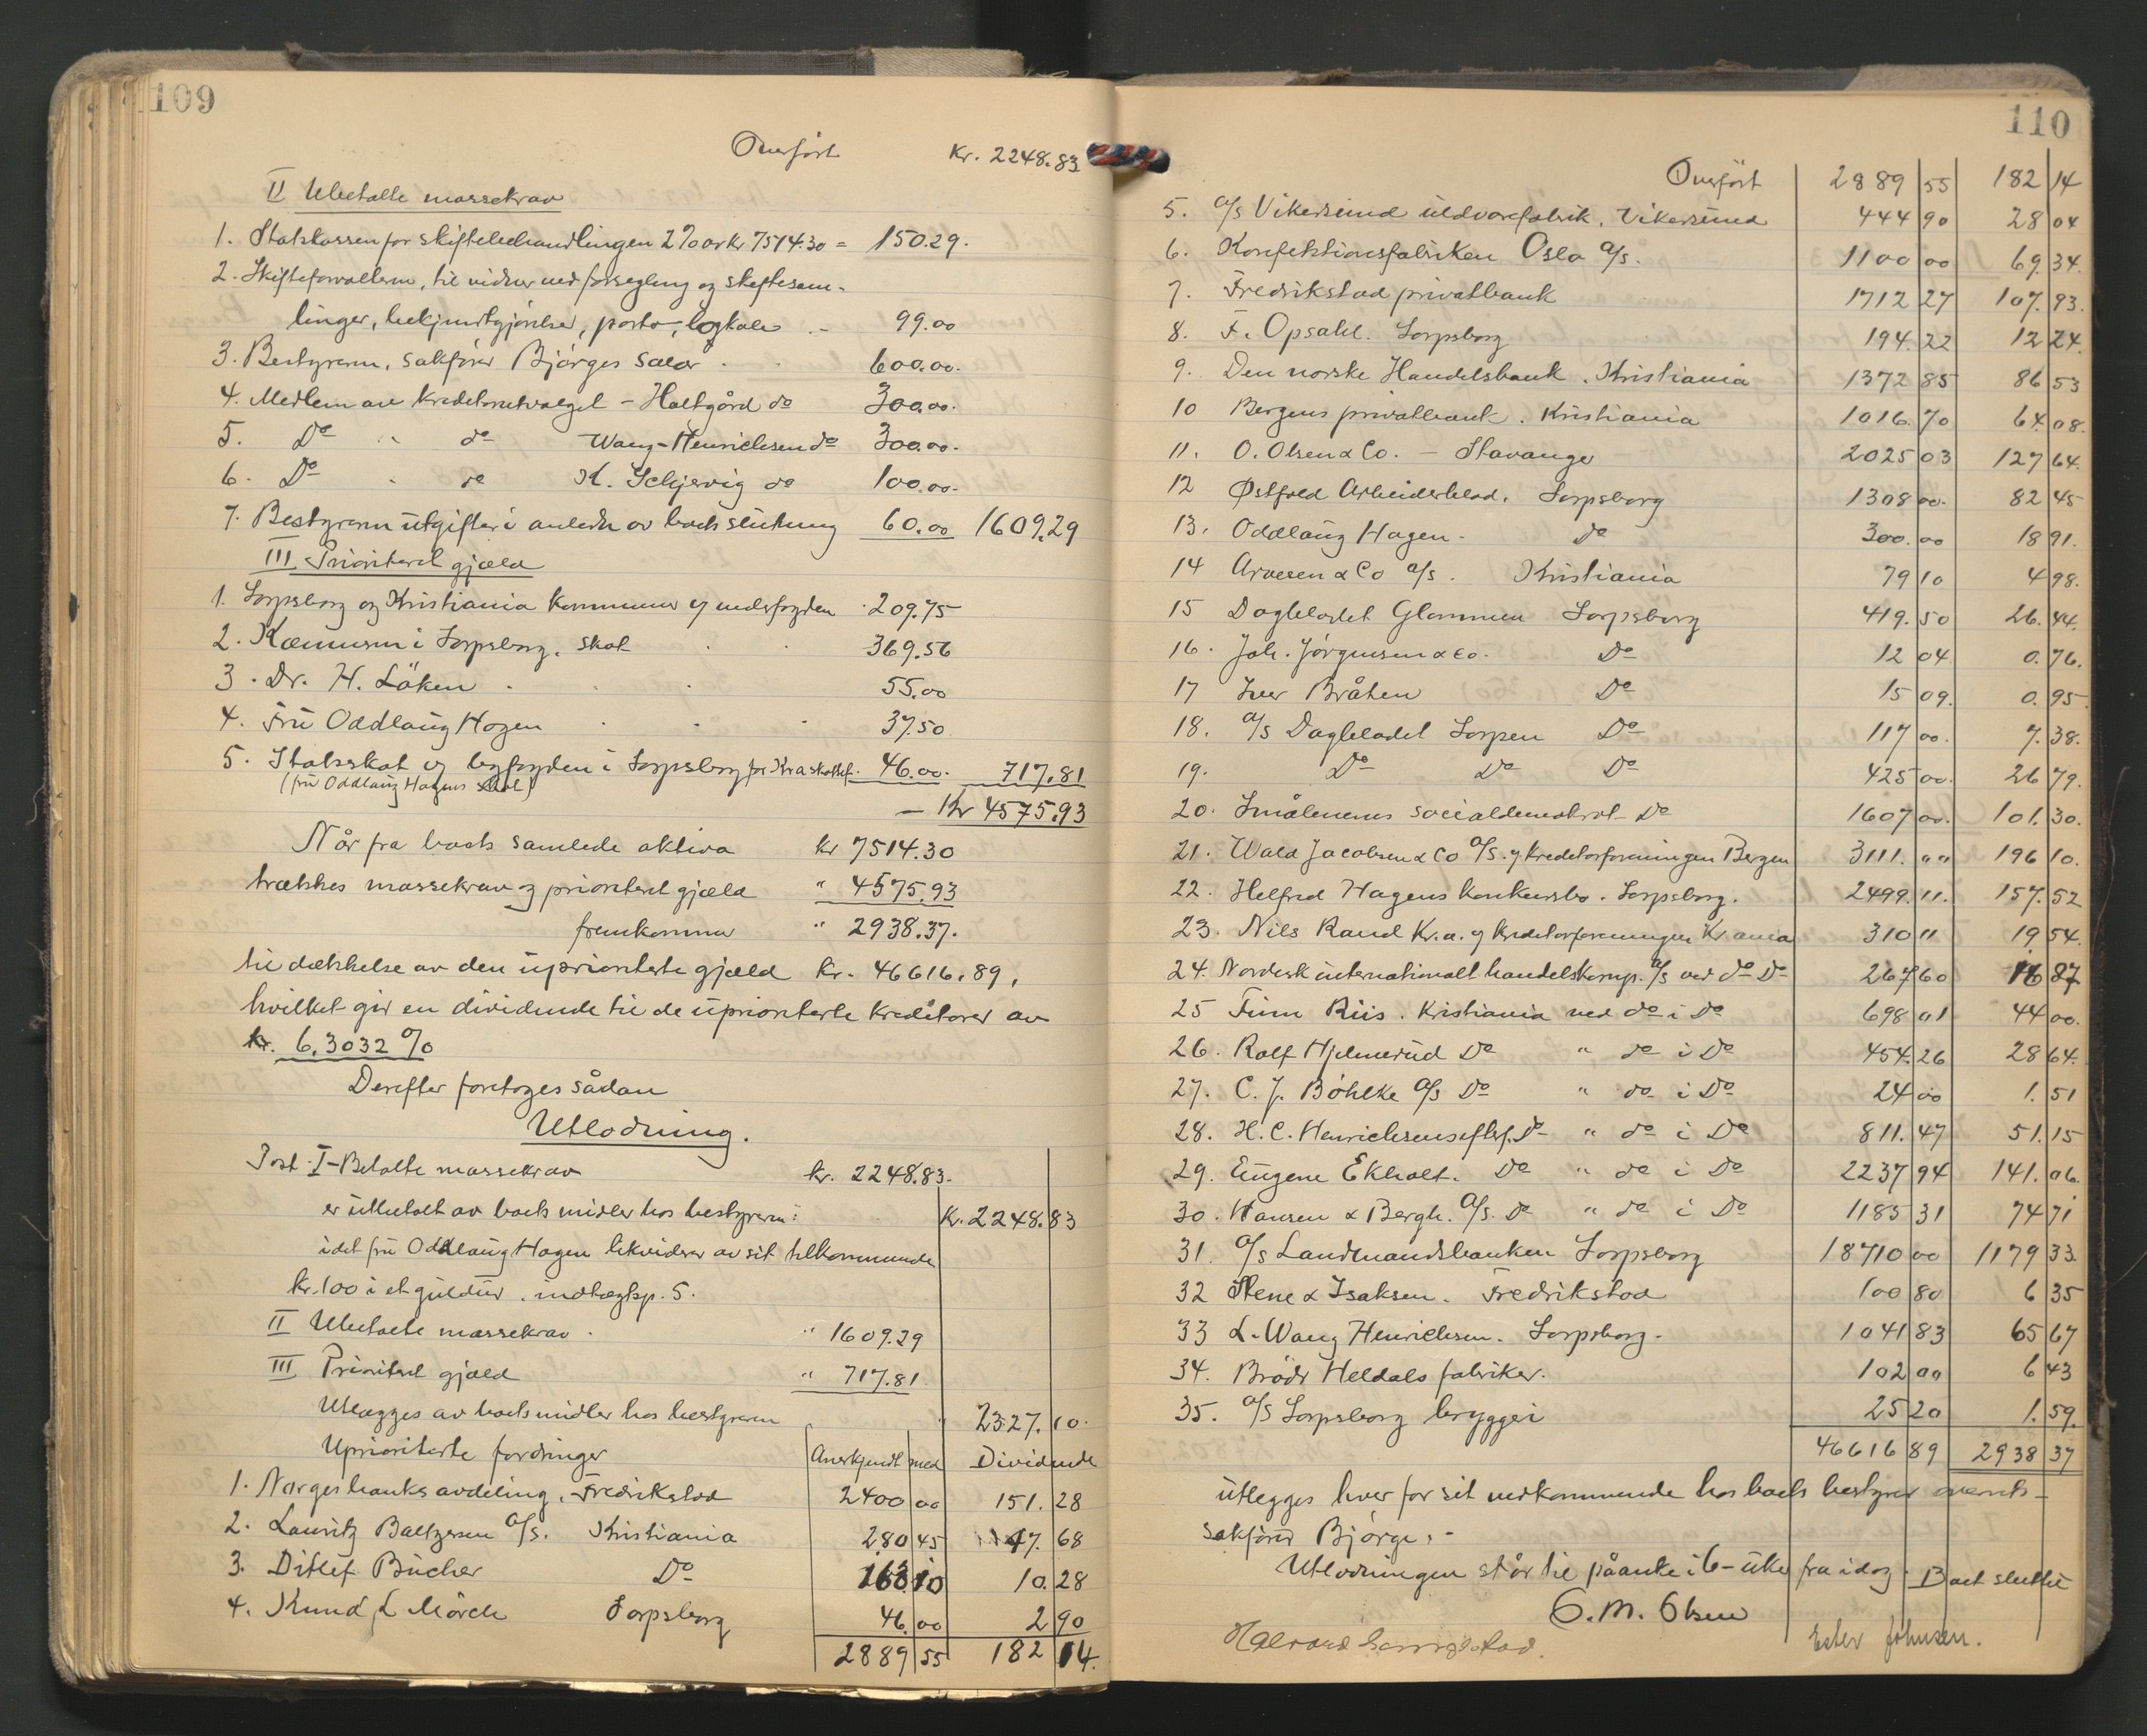 109
Overført Kr. 2248.83
II Ubetalte massekrav
1. Statskassen for skiftebehandlingen 2% av kr 7514.30 = 150.29.
2. Skifteforvalteren, til vidner ved forsegling og skiftesam-
linger, bekjendtgjørelser, porto, 99.00
3. Bestyreren, sakfører Bjørges salær 600.00.
4. Medlem av kreditorutvalget - Holtgård do 300.00.
5. Do " do Wang-Henrichsen do 300.00.
6. Do " do K. Schjervig do 100.00.
7. Bestyreren utgifter i anledn av boets slutning 60.00 1609.29
III Prioritert gjæld
1. Sarpsborg og Kristiania kommuner v/ underfogden 209.75
2. Kæmneren i Sarpsborg, skat 369.56
3. Dr. H. Löken 55.00
4. Fru Oddlaug Hagen 37.50
5. Statsskat v/ byfogden i Sarpsborg for Kra skattef. 46.00. 717.81
(fru Oddlaug Hagens skat)
- Kr 4575.93
Når fra boets samlede aktiva kr 7514.30
trækkes massekrav og prioritert gjæld " 4575.93
fremkommer " 2938.37.
til dækkelse av den upriorterte gjæld kr. 46616.89,
hvilket gir en dividende til de upriorterte kreditorer av
kr. 6,3032 %
Derefter foretoges sådan
Utlodning.
Post I - Betalte massekrav kr. 2248.83.
er utbetalt av boets midler hos bestyreren: Kr. 2248.83
idet fru Oddlaug Hagen likviderer av sit tilkommende
kr. 100 i et guldur, indtægtsp. 5.
II Ubetalte massekrav. " 1609.29
III Prioritert gjæld " 717.81
Utlægges av boets midler hos bestyreren 2327.10.
Upriorterte fordringer Anerkjendt med Dividende
1. Norges banks avdeling, Fredrikstad 2400 00 151.28
2. Lauritz Baltzersen A/S. Kristiania 280 45 17.68
3. Ditlef Bücher Do 163 10 10.28
4. Knud L Mörch Sarpsborg 46.00 2 90
2889 55 182 14.
110
Overført 2889 55 182 14
5. A/S Vikersund uldvarefabrik, Vikersund 444 90 28 04
6. Konfektionsfabriken Oslo A/S. 1100 00 69.34.
7. Fredrikstad privatbank 1712 27 107.93.
8. F. Opsahl. Sarpsborg 194.22 12 24.
9. Den norske Handelsbank. Kristiania 1372 85 86 53
10 Bergens privatbank. Kristiania 1016 70 64.08.
11. O. Olsen & Co. - Stavanger 2025 03 127 64.
12 Østfold Arbeiderblad. Sarpsborg 1308 00. 82 45
13. Oddlaug Hagen - Do 300.00 18 91.
14 Arnesen & Co A/S. Kristiania 79 10 4 98.
15 Dagbladet Glommen Sarpsborg 419.50 26.44.
16. Joh. Jørgensen & Co. Do 12 04 0.76.
17 Iver Bråten Do 15 09. 0.95
18. A/S Dagbladet Sarpen Do 117 00. 7.38.
19. Do Do Do 425 00. 26 79.
20. Smålenenes socialdemokrat Do 1607 00. 101.30.
21. Wald Jacobsen & Co A/S. v/ Kreditorforeningen Bergen 3111. " " 196 10.
22. Helfred Hagens konkursbo. Sarpsborg. 2499.11. 157.52
23. Nils Rand Kr.a. v/ kreditorforeningen Kr.ania 310 11 19 54.
24. Nordisk internationalt handelskomp. A/S ved do Do 267 60 16 87
25 Finn Riis. Kristiania ved do i Do 698 01 44 00.
26. Rolf Hjelmerud Do " do i Do 454.26 28 64.
27. C. J. Böhlke A/S Do " do i Do 24 00 1.51
28. H. C. Henrichsens efterf. Do " do i Do 811.47 51.15
29. Eugene Ekholt. Do " do i Do 2237 94 141.06.
30. Hansen & Bergh. A/S. Do " do i Do 1185 31 74 71
31. A/S Landmandsbanken Sarpsborg 18710 00 1179 33.
32 Stene & Isaksen. Fredrikstad 100 80 6 35
33 L. Wang Henrichsen. Sarpsborg. 1041 83 65 67
34. Brödr Heldals fabriker. 102 00 6 43
35. A/S Sarpsborg bryggeri 25 20 1.59.
46616 89 2938 37
utlegges hver for sit vedkommende hos boets bestyrer overrets-
sakfører Bjørge.-
Utlodningen står til påanke i 6-uker fra idag. Boet sluttet
O. M. Olsen
Halvard Ester Johnsen.